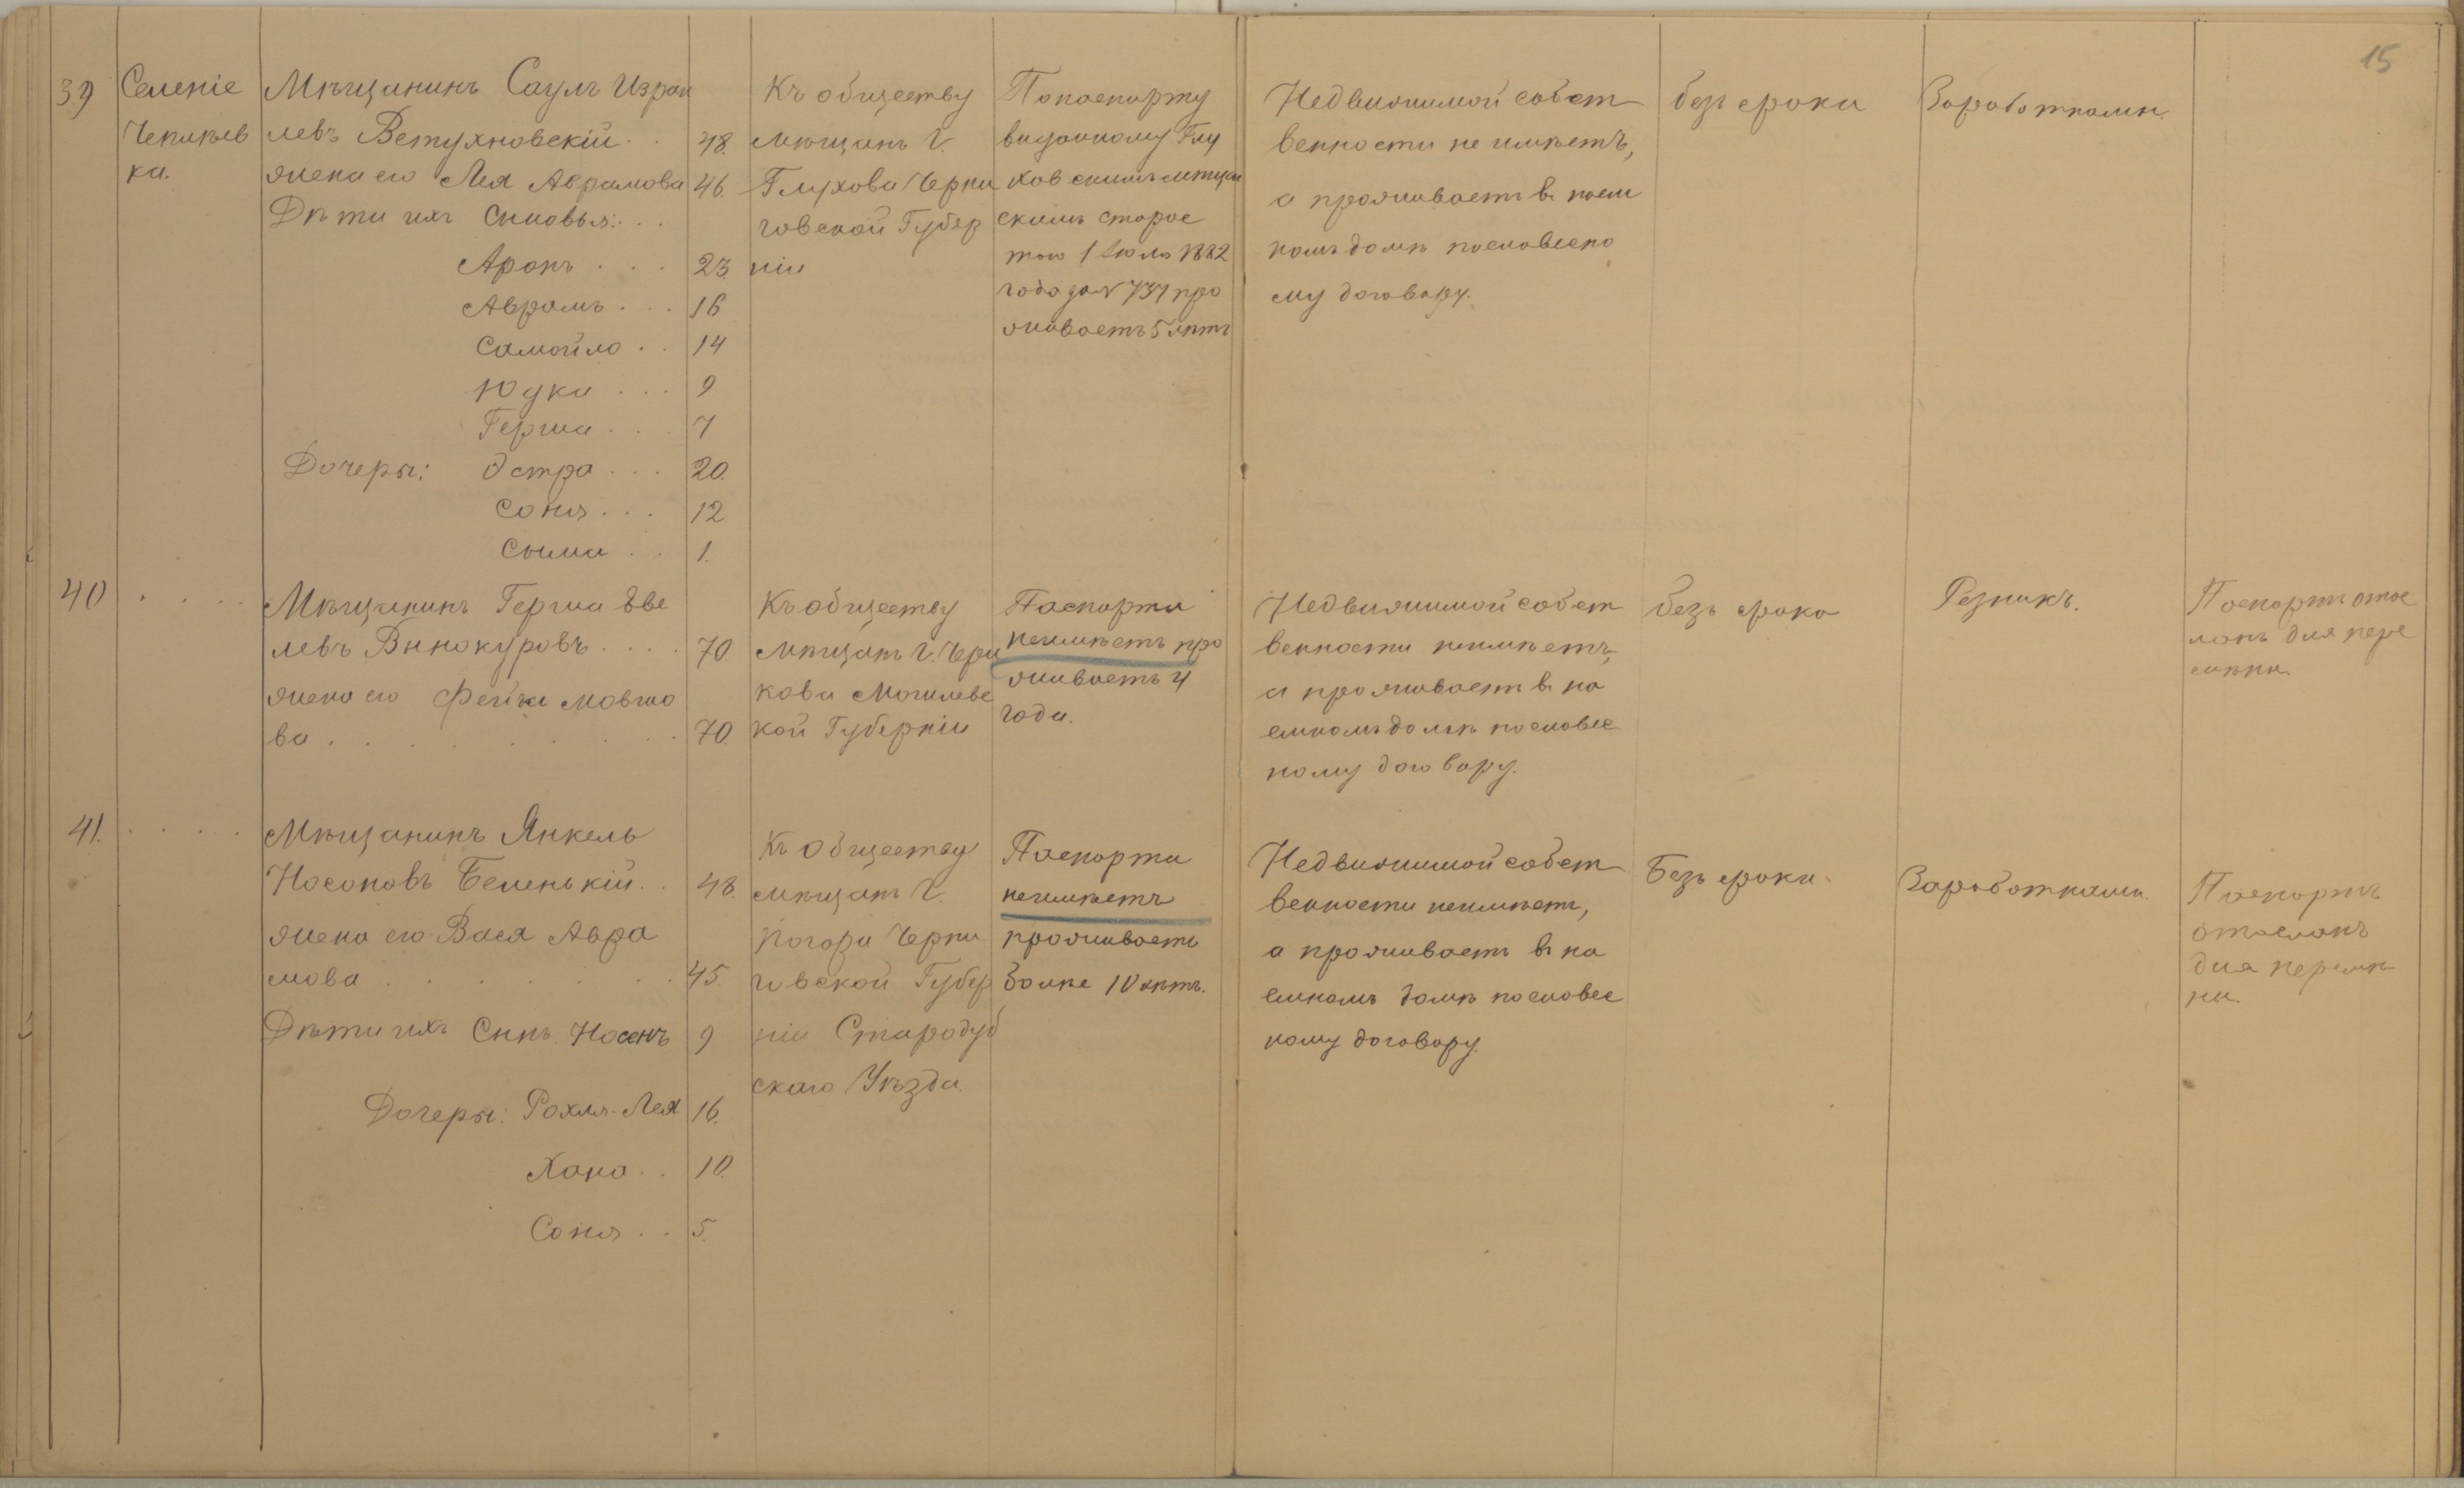 15
39
Селеніе
Чепилев
ка.
Мѣщанинъ Саулъ Израи
левъ Ветухновскій . . 48.
жена его Лея Аврамова 46.
Дѣти ихъ Сыновья: . .
Аронъ . . . 23
Аврамъ . . . 16
Самойло . . 14
Юдка . . . 9
Герша . . . 7
Дочеры: Эстра . . . 20.
Соня . . . 12
Сыма . . 1.
Къ обществу
мѣщанъ Г.
Глухова Черни
говской Губер
ніи
По паспорту
виданному Глу
ховскимъ мѣщан
скимъ старос
тою 1 Іюля 1882
года за N 737 про
живаетъ 5 лѣтъ
Недвижимой собст
венности не имѣетъ,
а проживаетъ въ наем
номъ домѣ по словесно
му договору.
безъ срока
Заработками.
40 . . . .
Мѣщанинъ Герша Еве
левъ Винокуровъ . . . . 70.
жена его Фейга Мовшо
ва . . . . . . . 70.
Къ обществу
мѣщанъ Г. Чери
кова Могилевс
кой Губерніи
Паспорта
неимѣетъ про
живаетъ 4
года.
Недвижимой собст
венности неимѣетъ,
а проживаетъ въ на
емномъ домѣ по словес
ному договору.
безъ срока
Резникъ.
Паспортъ отос
ланъ для пере
мѣны.
41. . . . .
Мѣщанинъ Янкель
Носоновъ Беленькій . . 48.
жена его Вася Авра
мова . . . . . . 45.
Дѣти ихъ Сынъ Носенъ 9
Дочеры: Рохля-Лея 16.
Хана . . 10.
Соня . . 5.
Къ Обществу
мѣщанъ Г.
Погора Черни
говской Губер
ніи Стародуб
скаго Уѣзда.
Паспорта
неимѣетъ
проживаетъ
болѣе 10 лѣтъ.
Недвижимой собст
венности неимѣетъ,
а проживаетъ въ на
емномъ домѣ по словес
ному договору.
Безъ срока.
Заработками.
Паспортъ
отосланъ
для перемѣ
ны.